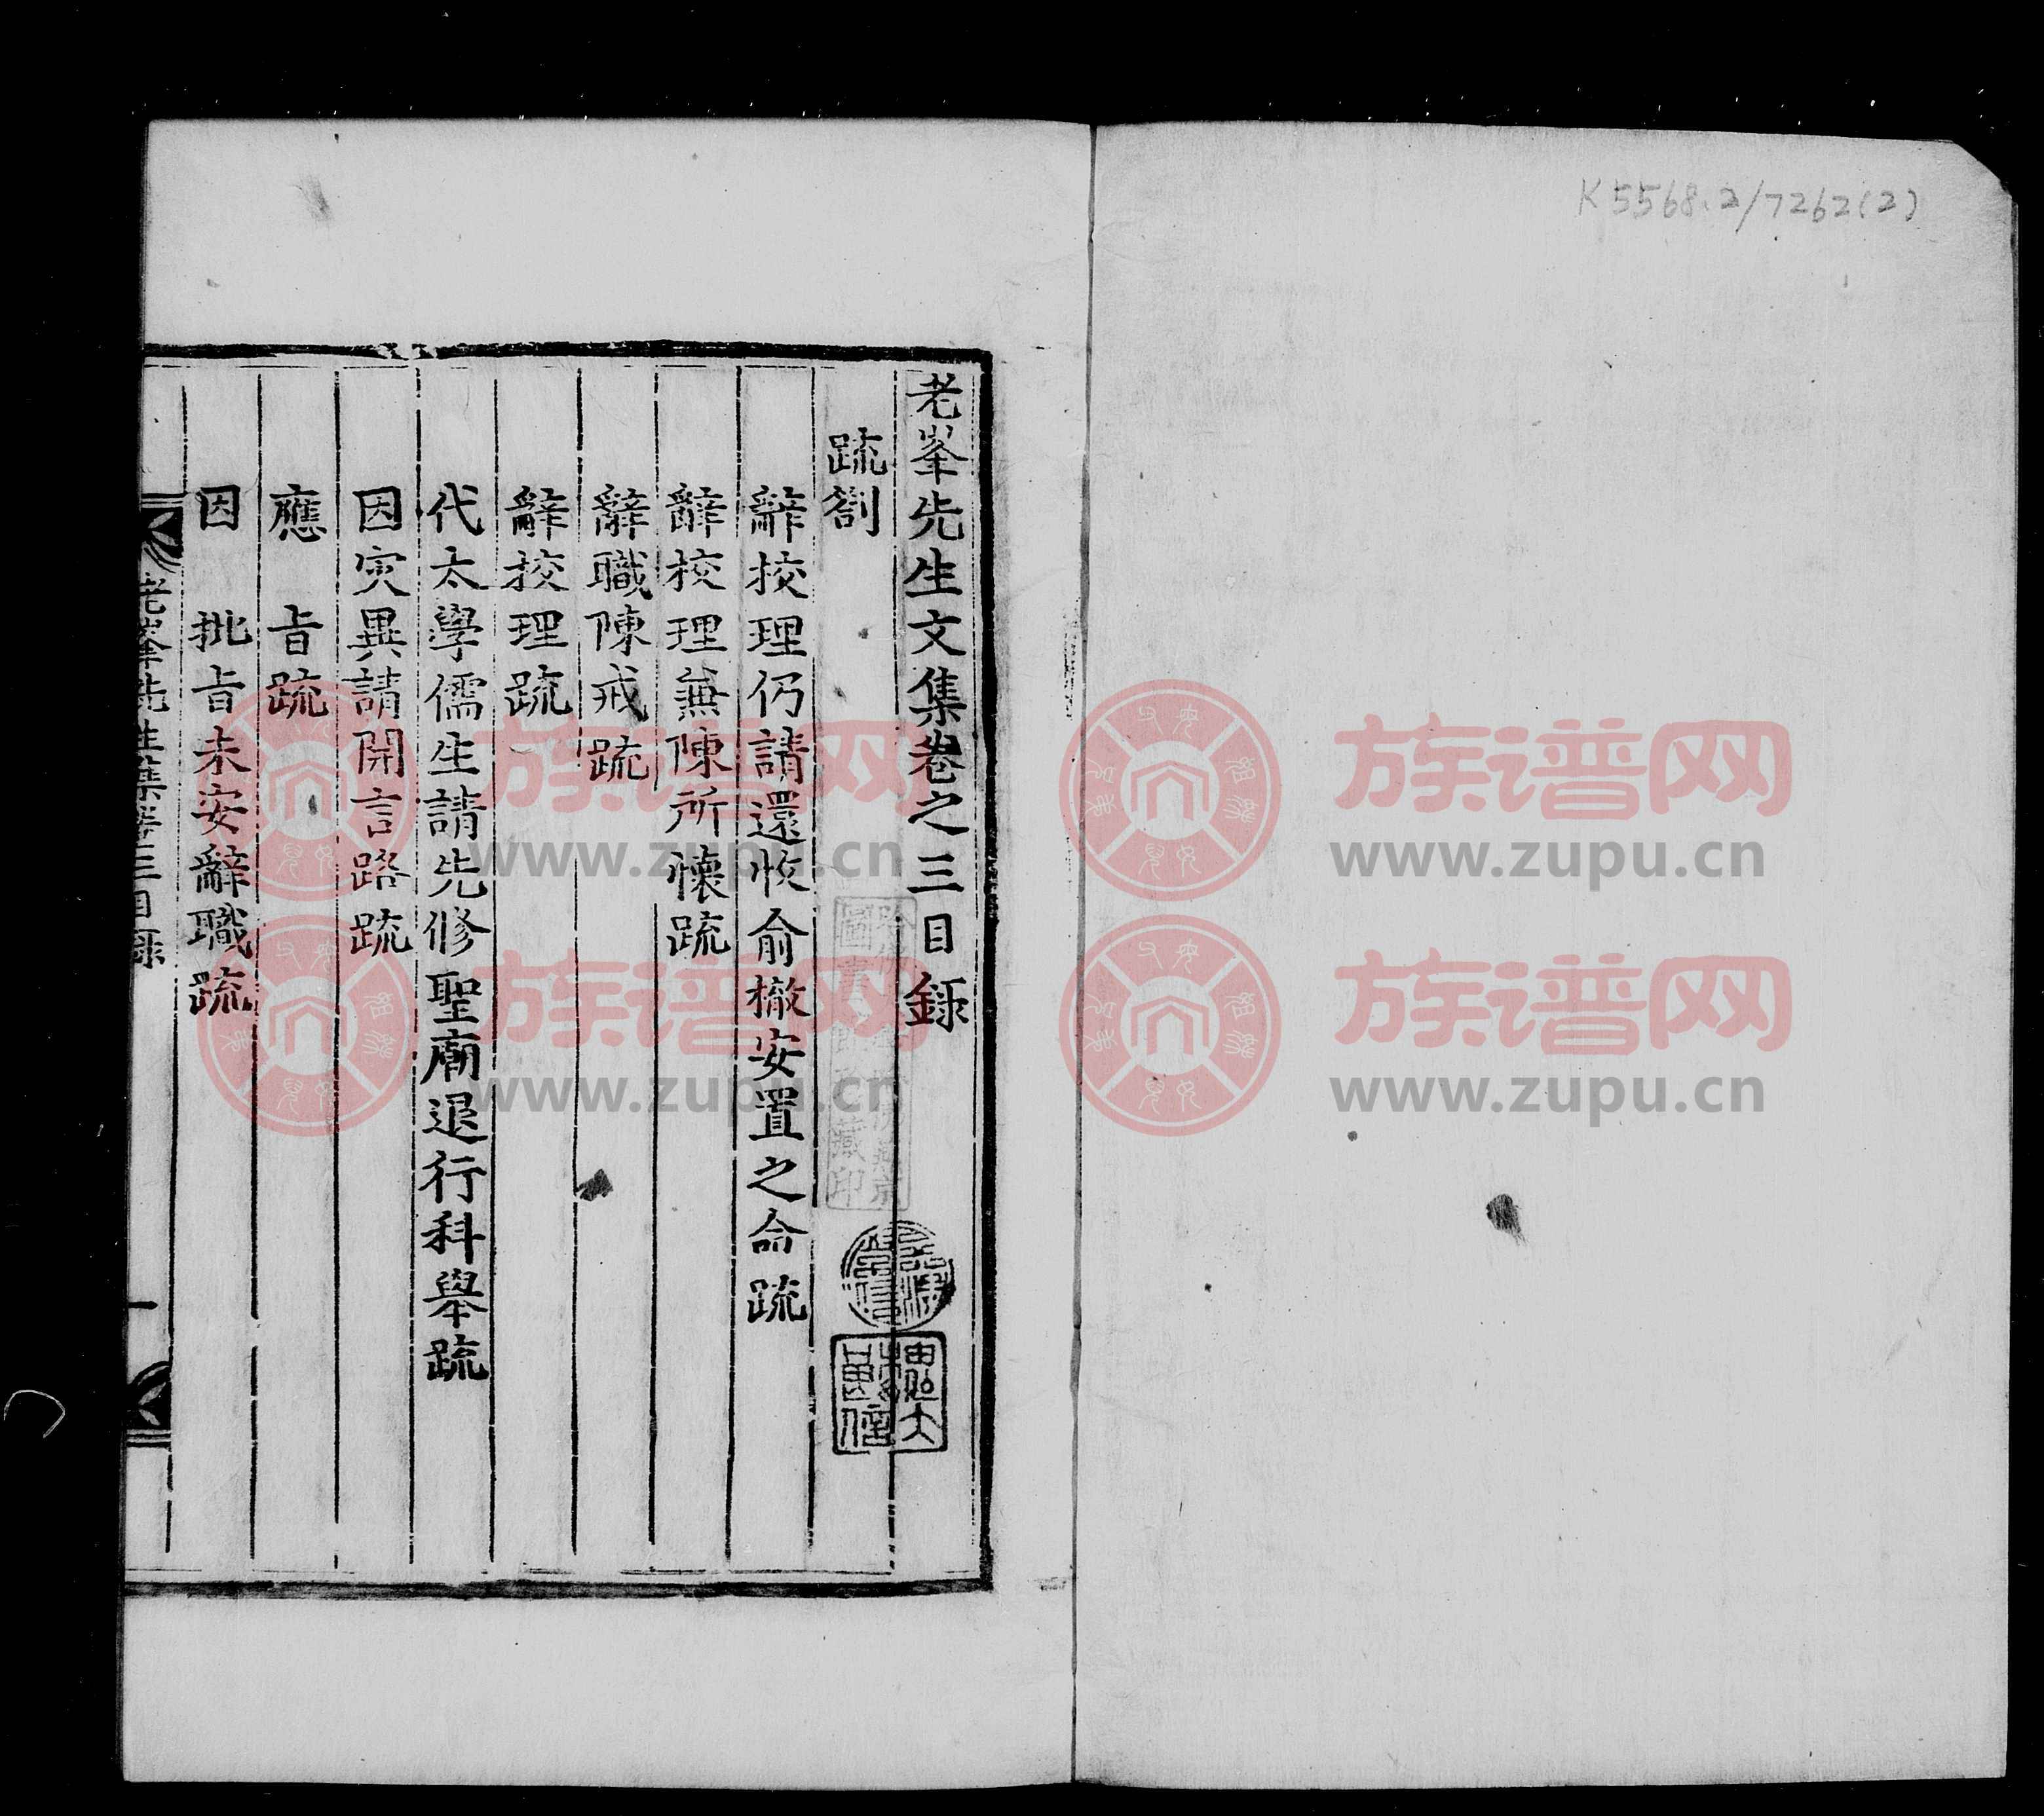 K5568.2/7262(2)
老峯先生文集卷之三目錄
疏劄
辭校理仍請還收俞㯙安置之命疏
辭校理兼陳所懷疏
辭職陳戒疏
辭校理疏
代太學儒生請先修聖廟退行科舉疏
因灾異請開言路疏
應 旨疏
因 批旨未安辭職疏
老峯先生集卷三目錄
一
族谱网
www.zupu.cn
族谱网
www.zupu.cn
族谱网
www.zupu.cn
族谱网
www.zupu.cn